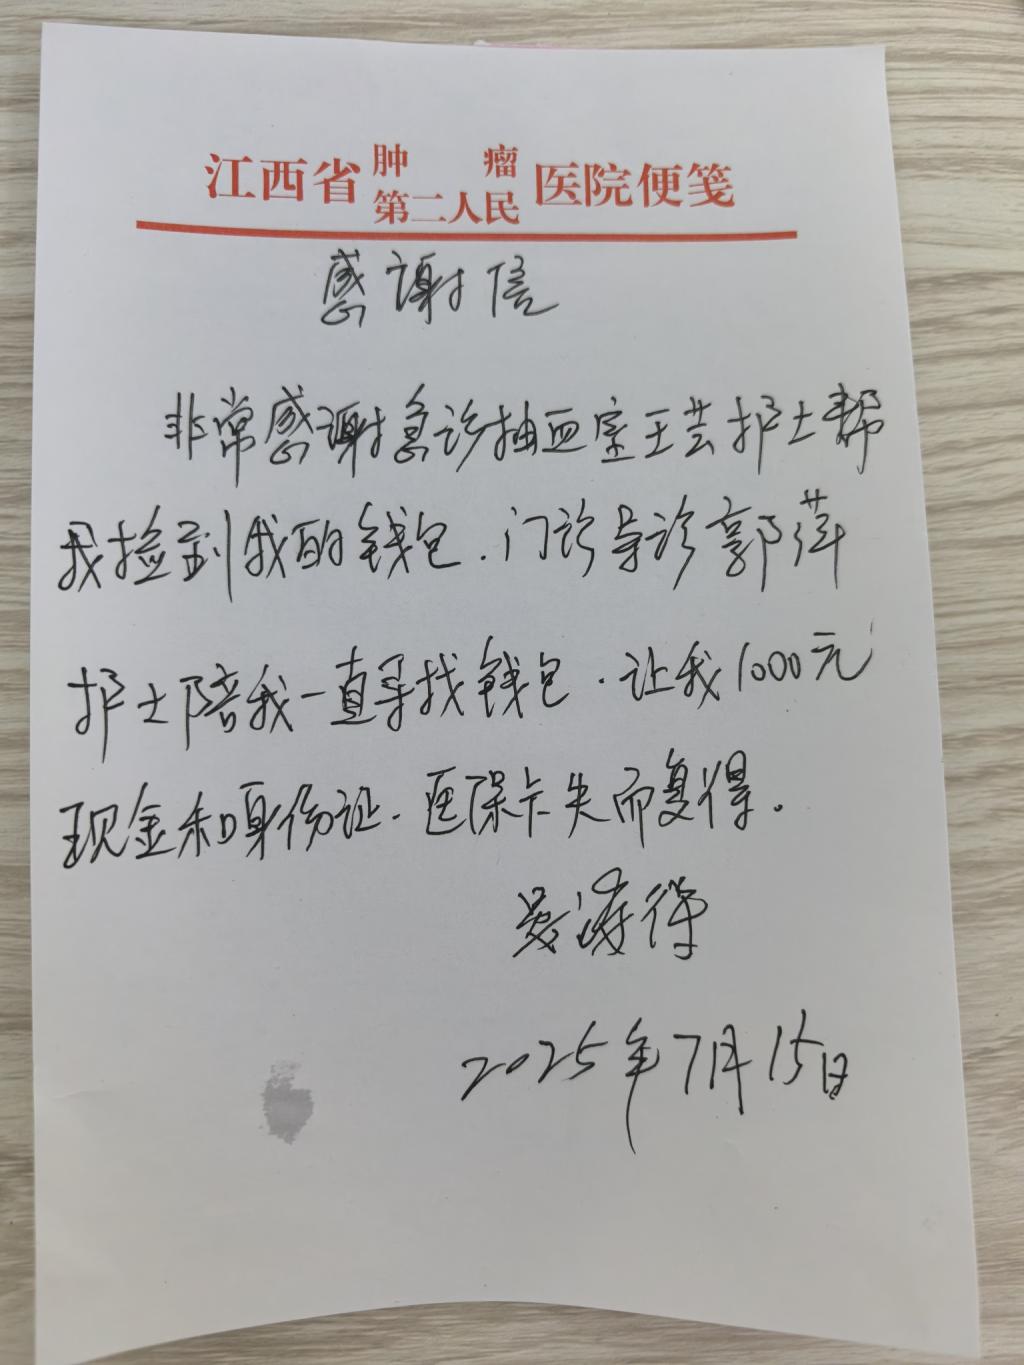 江西省肿瘤医院便笺
第二人民
感谢信
非常感谢急诊抽血室王芸护士帮
我捡到我的钱包.门诊导诊郭萍
护士陪我一直寻找钱包.让我1000元
现金和身份证.医保卡失而复得。
2025年7月15日